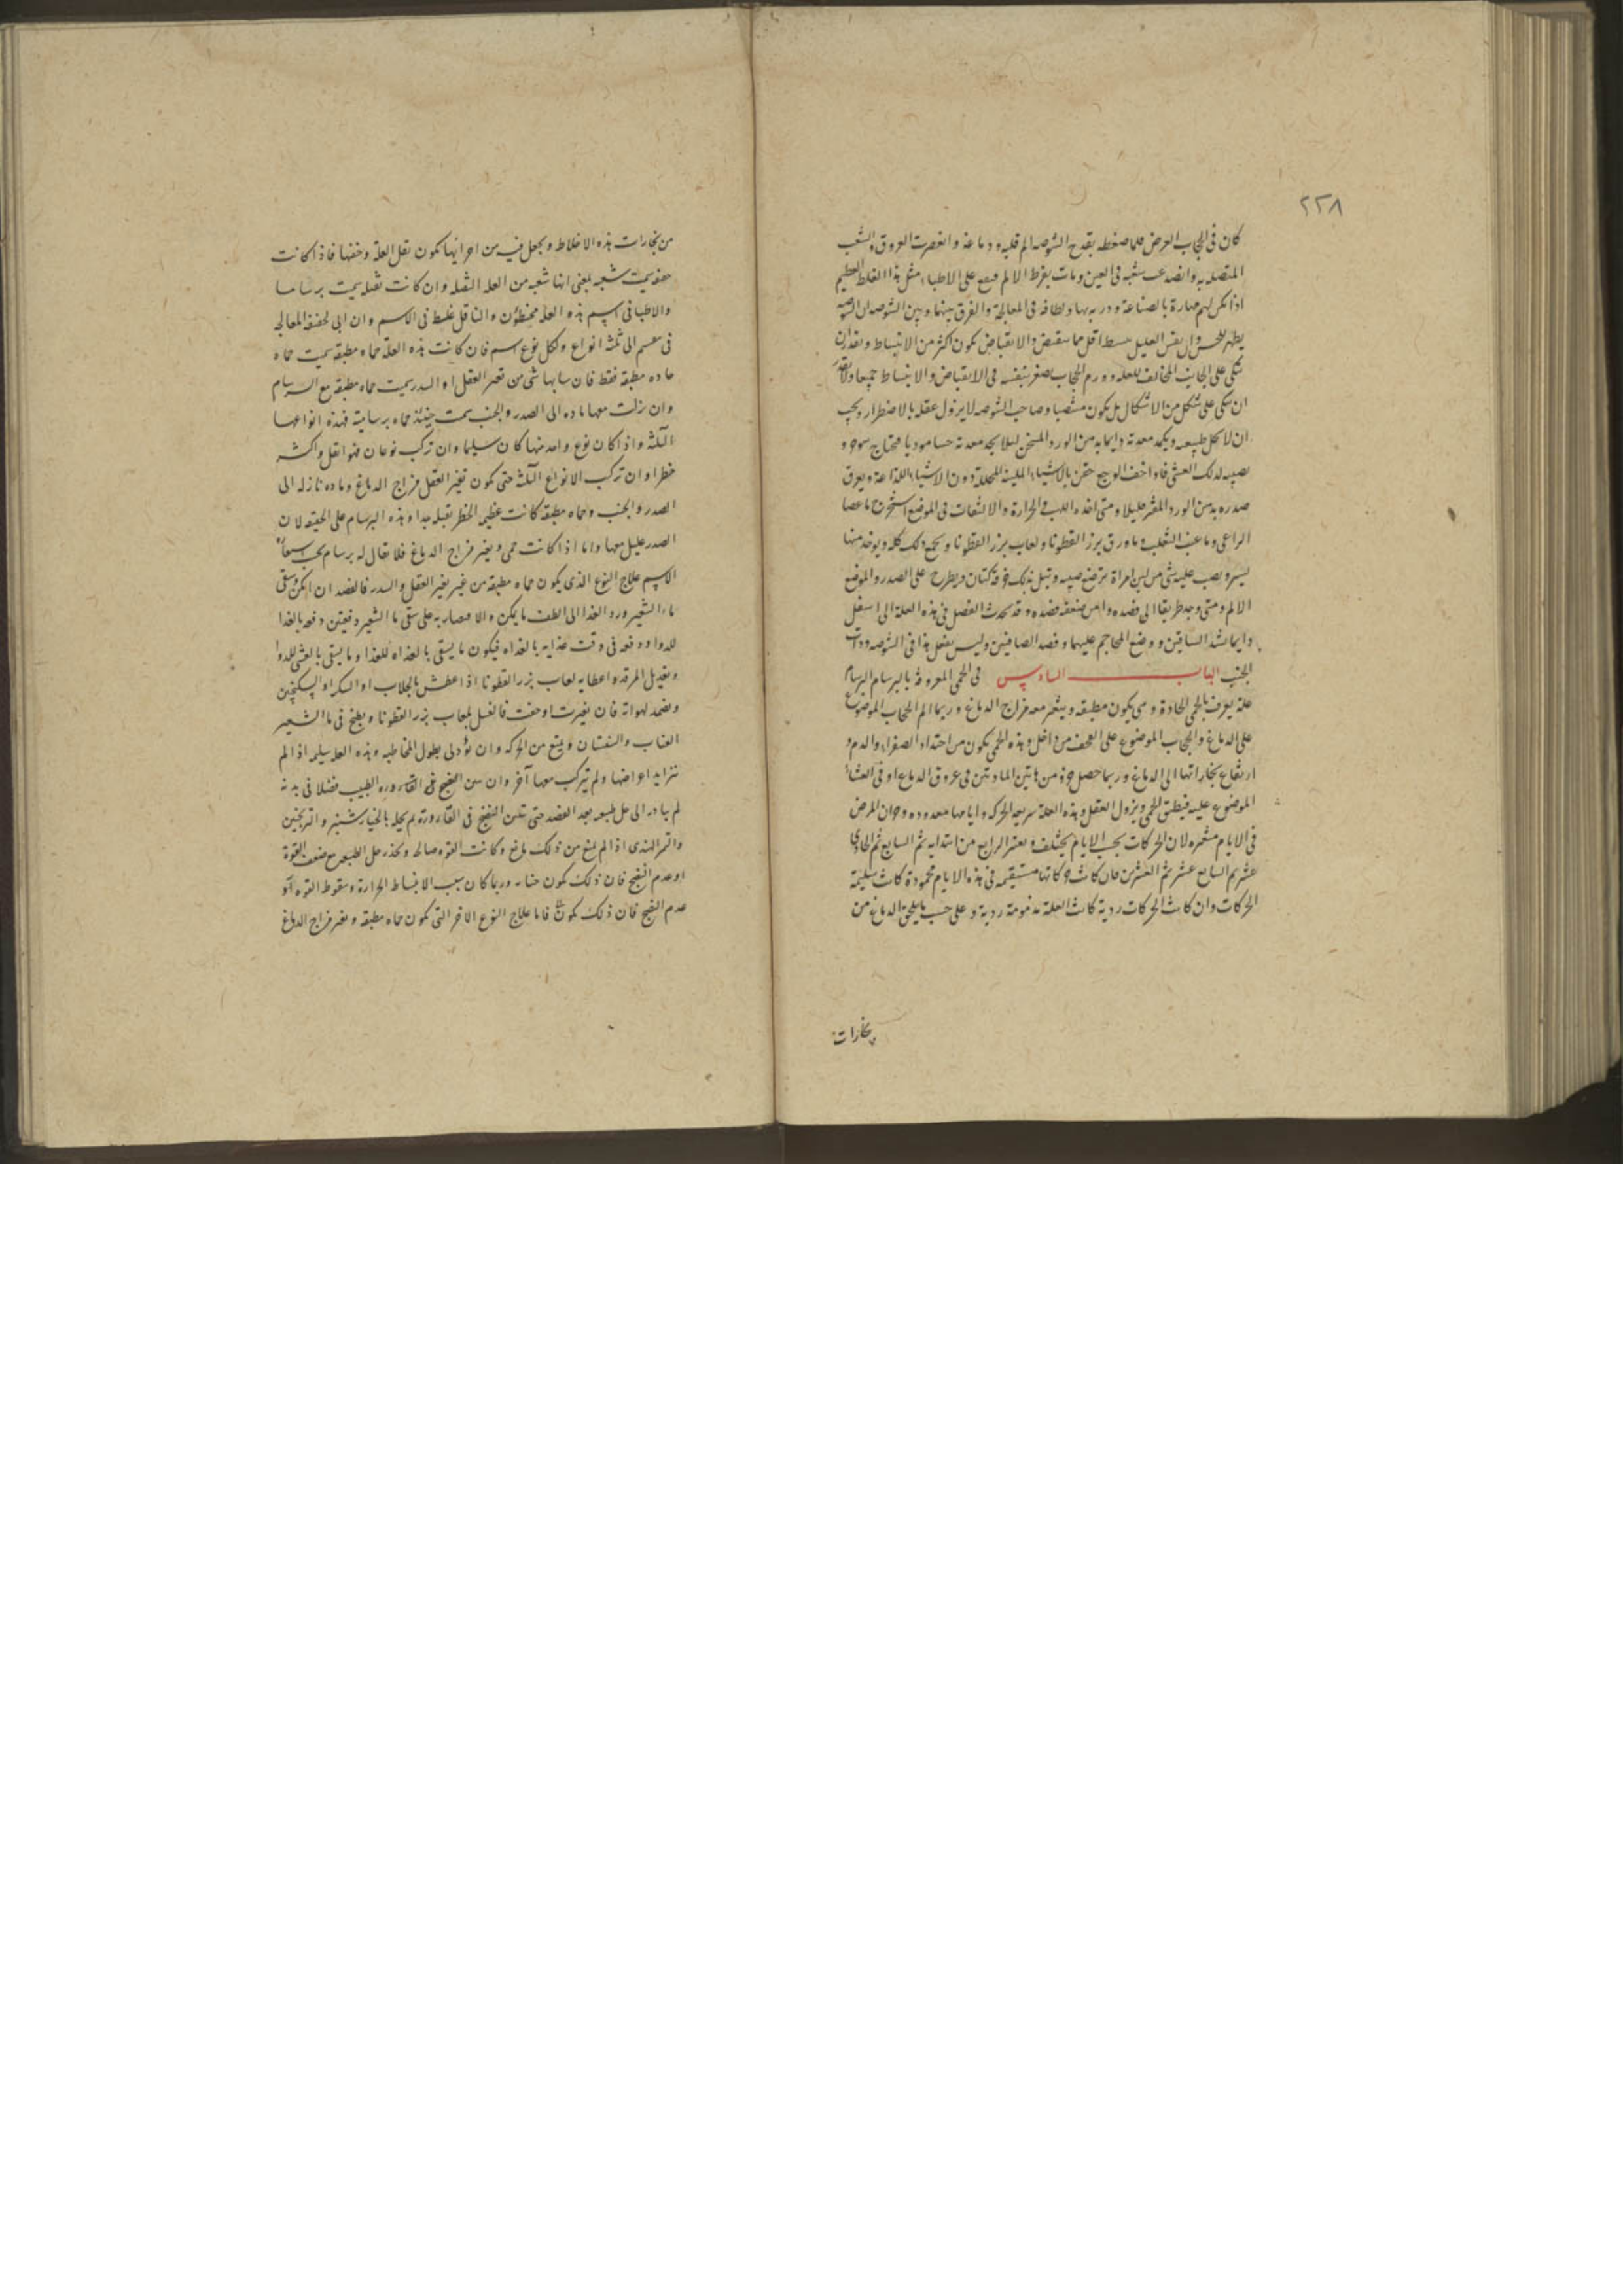 ٢٢٨
كان في الحجاب العرض مما ضغطه بقدح الشوصه الم قلبه ودماغه وانعصرت العروق والشعب
المتصله به وانصدعت شعبه في العين ومات بفرط الالم على الاطباء مثل هذا الغلط العظيم
اذا لم يكن لهم مهارة بالصناعة ودربه بها ولطافه في المعالجة والفرق بينها وبين الشوصه ان الشوصه
يظهر للحس وان نفس العليل ينبسط اقل مما ينقبض والانقباض يكون اكثر من الانبساط ويقدر ان
يتكي على الجانب المخالف للعله وورم الحجاب يصغر بنفسه في الانقباض والانبساط جميعا ولا يقدر
ان يتكي على شكل من الاشكال بل يكون منتصبا وصاحب الشوصه لا يزول عقله بالاضطرار ويجب
ان لا يحل طبيعه ويكمد معدته دايما بدهن الورد المسخن ليلا يجد معدته حسا موديا فيحتاج
يصيبه لذلك الغشي فاذا خف الوجع حقن بالاشياء الملينه المحللة دون الاشياء اللذاعة ويعرق
صدره بدهن الورد المفتر قليلا ومتى اخذه اللهب والحرارة والالتهاب في الموضع استخرج ماء عصا
الراعي وماء عنب الثعلب وماء ورق بزر القطونا ولعاب بزر القطونا ويجمع ذلك كله ويوخذ منها
يسير ويصب عليه شى من لبن امراة ترضع صبيه وتبل بذلك خرقة كتان ويطرح على الصدر والموضع
الالم ومتى وجد طريقا الى فصده وامن ضعفه فصده وقد يحدث الفصل في هذه العلة الى اسفل
دايما بشد الساقين ووضع المحاجم عليهما وفصد الصافنين وليس يفعل هذا في الشوصه وذات
الجنب الباب السادس في الحمى المعروفة بالبرسام البرسام
علة يعرف بالحمى الحادة وهى يكون مطبقه ويتغير معه مزاج الدماغ وربما الم الحجاب الموضوع
على الدماغ والحجاب الموضوع على القحف من داخل وهذه الحمى يكون من احتداد الصفراء والدم و
ارتفاع بخاراتها الى الدماغ وربما حصل جزء من هاتين المادتين في عروق الدماغ او في الغشاء
الموضوع عليه فيطبق الحمى ويزول العقل وهذه العلة سريعه الحركه وايامها معدوده وبحران المرض
في الايام متغيره لان الحركات بحسب الايام يختلف ويعتبر الرابع من ابتدايه ثم السابع ثم الحادي
عشر ثم السابع عشر ثم العشرين فان كانت حركاتها مستقيمه في هذه الايام محمودة كانت سليمة
الحركات وان كانت الحركات ردية كانت العلة مذمومة ردية وعلى حسب ما يلحق الدماغ من
بخارات
من بخارات هذه الاخلاط ويحصل فيه من اجزائها يكون ثقل العلة وخفتها فاذا كانت
خفيفه سميت شعبه يعني انها شعبه من العله الثقيله وان كانت ثقيله سميت برساما
والاطبا في اسم هذه العله مخطئون والناقل غلط في الاسم وان ابى لحفته المعالجه
في ينقسم الى ثلثه انواع ولكل نوع اسم فان كانت هذه العلة حماه مطبقه سميت حماه
حاده مطبقة فقط فان شابها شى من تغير العقل او السدر سميت حماه مطبقه مع السرسام
وان نزلت معها ماده الى الصدر والجنب سميت حينئذ حماه برسامية فهذه انواعها
الثلثه واذا كان نوع واحد منها كان سليما وان تركب نوعان فهو اثقل واكثر
خطرا وان تركب الانواع الثلثه حتى يكون تغير العقل مزاج الدماغ وماده نازله الى
الصدر والجنب وحماه مطبقه كانت عظيم الخطر ثقيله جدا وهذه البرسام على الحقيقه لان
الصدر عليل معها واما اذا كانت حمى وتغير مزاج الدماغ فلا يقال له برسام بحسب
الاسم علاج النوع الذي يكون حماه مطبقه من غير تغير العقل والسدر فالفصد ان امكن وسقى
ماء الشعير ورد الغذا الى الطف ما يمكن والا مصاربه على سقى ماء الشعير دفعتين دفعه بالغذا
للدوا ودفعه في وقت غذايه بالغداه فيكون ما يسقى بالغداه للغذا وما يسقى بالعشى للدوا
وتعديل المرقد واعطايه لعاب بزر القطونا اذا عطش بالجلاب او السكر او السكنجبين
ويضمد لهواته فان تغيرت او جفت فالغسل بلعاب بزر القطونا ويطبخ في ماء الشعير
العناب والسفستان ويمنع من الحركه وان يؤدلى بطول المخاطبه وهذه العله سليمه اذا لم
تتزايد اعراضها ولم يتركب معها آخر وان تبين النضج في القاروره الطبيب فضلا في بدنه
لم يبادر الى حل طبيعه بعد الفصد حتى تبين النضج في القارورة ثم يحله بالخيار شنبر والترنجبين
والتمر الهندى اذا لم يمنع من ذلك مانع وكانت القوه صالحه ويحذر حل الطبيعه مع ضعف القوة
او عدم النضج فان ذلك يكون خطا وربما كان سبب الانبساط الحرارة وسقوط القوه او
عدم النضج فان ذلك يكون فاما علاج النوع الاخر التي يكون حماه مطبقه وتغير مزاج الدماغ